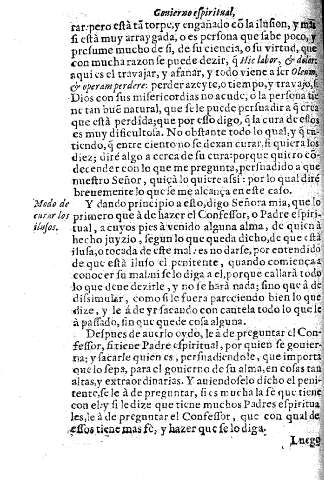 Gouierno espiritual,
rar: pero està tã torpe, y engañado cõ la ilusion, y mas
si està muy arraygada, o es persona que sabe poco, y
presume mucho de si, de su ciencia, o su virtud, que
cõ mucha razon se puede dezir, q̃ Hic labor, & dolor:
aqui es el trauajar, y afanar, y todo viene a ser Oleum,
& operam perdere: perder azeyte, o tiempo, y trauajo, si
Dios con sus misericordias no acude, o la persona tie
ne tan buẽ natural, que se le puede persuadir a q̃ crea
que està perdida; que por esso digo, q̃ la cura de estos
es muy dificultosa. No obstante todo lo qual, y q̃ en-
tiendo, q̃ entre ciento no se dexan curar, si quiera los
diez; dirè algo a cerca de su cura: porque quiero cõ-
decender con lo que me pregunta, persuadido a que
nuestro Señor, quiçà lo quiere assi: por lo qual dirè
breuemente lo que se me alcança en este caso.
Modo de
curar los
ilusos.
Y dando principio a esto, digo Señora mia, que lo
primero que à de hazer el Confessor, o Padre espiri-
tual, a cuyos pies à venido alguna alma, de quien à
hecho juyzio, segun lo que queda dicho, de que està
ilusa, o tocada de este mal: es no darse, por entendido
de que està iluso el penitente, quando comiença a
conocer su mal: ni se lo diga a el, porque callarà todo
lo que deue dezirle, y no se harà nada; sino que à de
disimular, como si le fuera pareciendo bien lo que
dize, y le à de yr sacando con cautela todo lo que le
à passado, sin que quede cosa alguna.
Despues de auerlo oydo, le à de preguntar el Con-
fessor, si tiene Padre espiritual, por quien se gouier-
na; y sacarle quien es, persuadiendole, que importa
que lo sepa, para el gouierno de su alma, en cosas tan
altas, y extraordinarias. Y auiendoselo dicho el peni-
tente, se le à de preguntar, si es mucha la fè que tiene
con el: y si le dize que tiene muchos Padres espiritua
les, le à de preguntar el Confessor, que con qual de
essos tiene mas fè, y hazer que se lo diga.
Luego